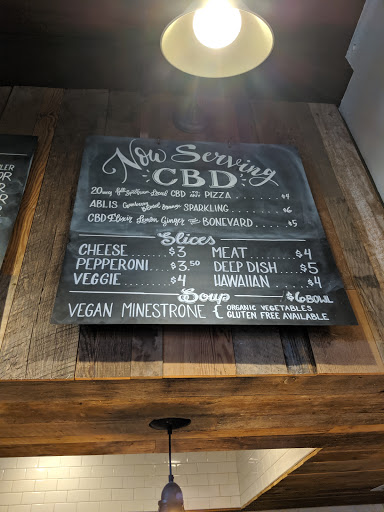 Now Serving
CBD
20mg Full Spectrum Dose CBD PIZZA $4
ABLIS Cranberry Blood Orange SPARKLING $6
CBD Elixir Lemon Ginger BONEYARD $5
Slices
CHEESE.....$3 MEAT.....$4
PEPPERONI...$3.50 DEEP DISH..$5
VEGGIE.....$4 HAWAIIAN...$4
Soup $6 BOWL
VEGAN MINESTRONE { ORGANIC VEGETABLES
GLUTEN FREE AVAILABLE
LER